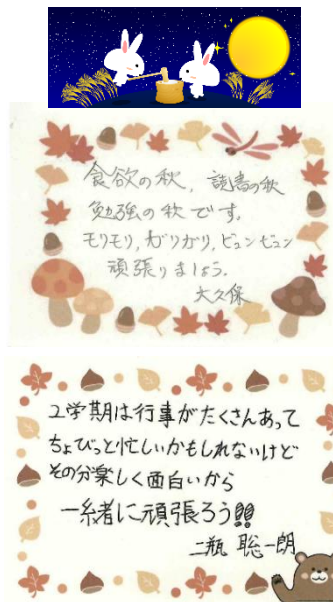 食欲の秋、読書の秋
勉強の秋です。
モリモリ、ガリガリ、ビュンビュン
頑張りましょう。
大久保
2学期は行事がたくさんあって
ちょびっと忙しいかもしれないけど
その分楽しく面白いから
一緒に頑張ろう!!
二瓶 聡一朗